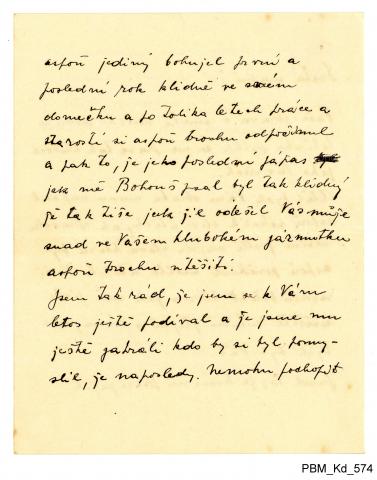 aspoň jediný bohužel první a
poslední rok klidně ve svém
domečku a po tolika letech práce a
starostí si aspoň trochu odpočinul
a pak to, že jeho poslední zápas
jak mě Bohouš psal byl tak klidný
že tak tiše jak žil odešel Vás může
snad ve Vašem hlubokém zármutku
aspoň trochu utěšiti.
Jsem tak rád, že jsem se k Vám
letos ještě podíval a že jsme mu
ještě zahráli kdo by si byl pomy-
slil, že naposledy. Nemohu pochopit
PBM_Kd_574